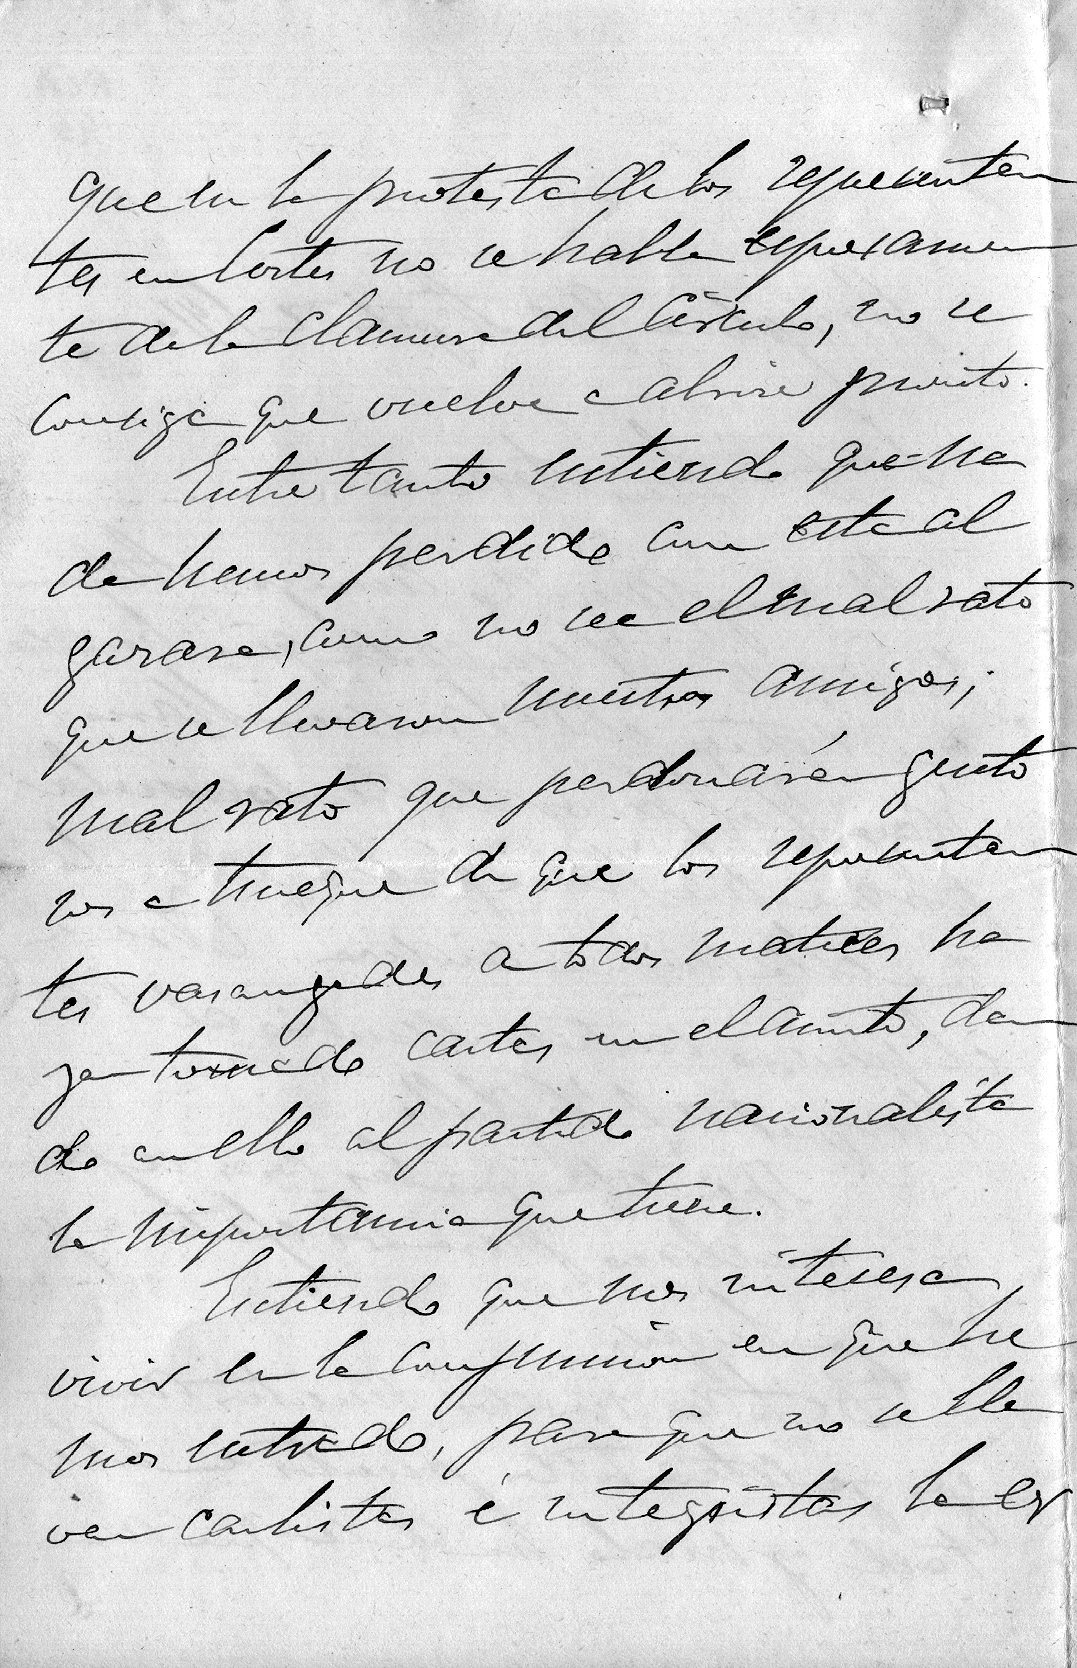 que en la protesta de los representan
tes en Cortes no se hable expresamen
te de la clausura del Círculo, no se
consiga que vuelva a abrirse pronto.
Entre tanto entiendo que na
da hemos perdido con esta al
garara, como no sea el mal rato
que se llevaron nuestros amigos;
mal rato que perdonarán gusto
sos a trueque de que los representan
tes vascongados a todos matices ha
yan tomado cartas en el asunto, dan
do en ello al partido nacionalista
la importancia que tiene.
Entiendo que nos interesa
vivir en la confusión en que he
mos entrado, para que no se lle
ven carlistas é integristas la ex